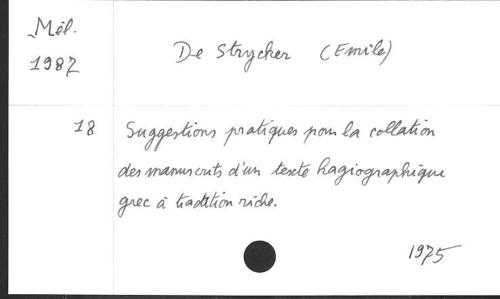 Mél.
1987
De Strycker (Emile)
18
Suggestions pratiques pour la collation
des manuscrits d'un texte hagiographique
grec à tradition riche.
1975